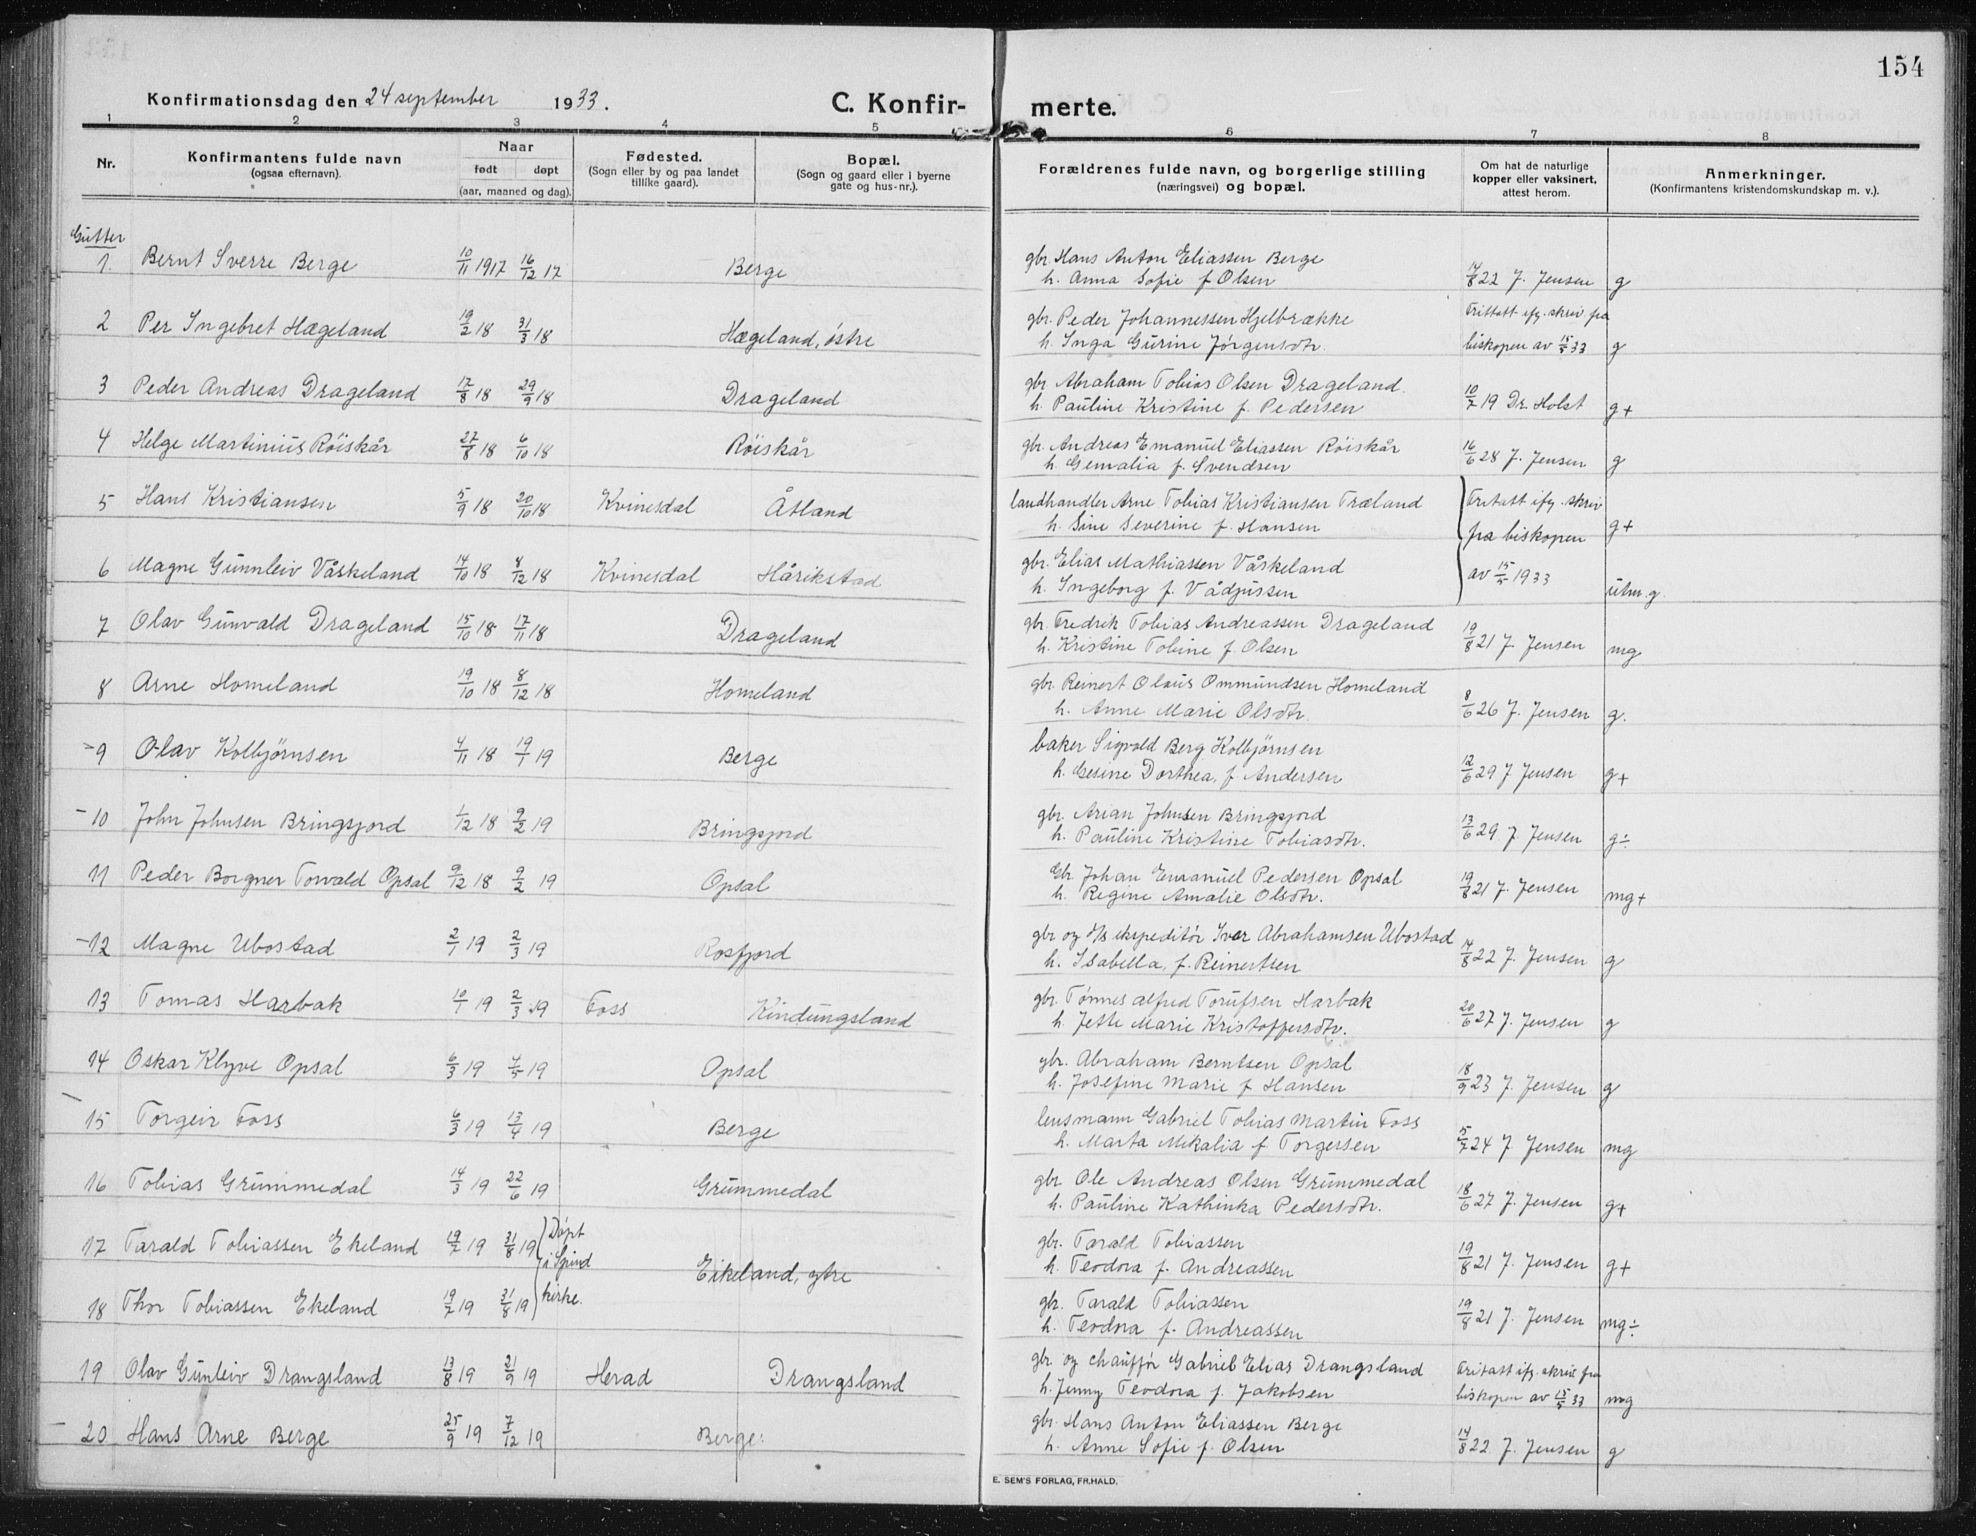 154
Konfirmationsdag den 24 september 1933.
C. Konfir- merte.
1 2 3 4 5 6 7 8
Nr.
Konfirmantens fulde navn
(ogsaa efternavn).
Naar
født døpt
(aar, maaned og dag).
Fødested.
(Sogn eller by og paa landet
tillike gaard).
Bopæl.
(Sogn og gaard eller i byerne
gate og hus-nr.).
Forældrenes fulde navn, og borgerlige stilling
(næringsvei) og bopæl.
Om hat de naturlige
kopper eller vaksinert,
attest herom.
Anmerkninger.
(Konfirmantens kristendomskundskap m. v.).
Gutter
1. Bernt Sverre Berge 10/11 1917 16/12 17 Berge
gbr Hans Anton Eliassen Berge
h. Anna Sofie f Olsen 14/8 22 J. Jensen g
2 Per Ingebret Hægeland 19/2 18 31/3 18 Hægeland, östre
gbr. Peder Johannessen Hjelbrække Frittatt ifg. skriv fra
h. Inga Gurine Jørgensdtr. biskopen av 15/5 33 g
3 Peder Andreas Drageland 17/8 18 29/9 18 Drageland
gbr Abraham Tobias Olsen Drageland.
h. Pauline Kristine f. Pedersen 10/7 19 Dr. Holst g+
4 Helge Martinius Röiskår 27/8 18 6/10 18 Röiskår
gbr. Andreas Emanuel Eliassen Röiskår
h. Gemalia f. Svendsen 16/6 28 J. Jensen g
5 Hans Kristiansen 5/9 18 20/10 18 Kvinesdal Åtland
landhandler Arne Tobias Kristiansen Træland Fritatt ifg. skriv
h. Sine Severine f. Hansen fra biskopen g+
6 Magne Gunnleiv Våskeland 14/10 18 8/12 18 Kvinesdal Hårikstad
gbr. Elias Mathiassen Våskeland av 15/5 1933
h. Ingeborg f. Vådjussen utm.g.
7 Olav Gunvald Drageland 15/10 18 17/11 18 Drageland
gbr. Fredrik Tobias Andreassen Drageland
h. Kristine Tobine f. Olsen 19/8 21 J. Jensen mg
8 Arne Homeland 19/10 18 8/12 18 Homeland
gbr. Reinert Olaus Ommundsen Homeland
h. Anne Marie Olsdtr. 8/6 26 J. Jensen g.
9 Olav Kolbjørnsen 4/11 18 19/1 19 Berge
baker Sigvald Berg Kolbjørnsen
h. Gesine Dorthea, f Andersen 12/6 29 J Jensen g+
10 John Johnsen Bringsjord 1/12 18 9/2 19 Bringsjord
gbr. Arian Johnsen Bringsjord
h. Pauline Kristine Tobiasdtr. 13/6 29. J. Jensen g÷
11 Peder Borgner Torvald Opsal 9/12 18 9/2 19 Opsal
Gbr. Johan Emanuel Pedersen Opsal
h. Regine Amalie Olsdtr. 19/8 21 J. Jensen mg+
12 Magne Ubostad 2/1 19 2/3 19 Rosfjord
gbr og d/s ekspeditör Iver Abrahamsen Ubostad
h. Isabella, f. Reinertsen 14/8 22 J. Jensen g
13 Tomas Harbak 10/1 19 2/3 19 Foss Kindungsland
gbr. Tønnes Alfred Torufsen Harbak
h. Jette Marie Kristoffersdtr. 20/6 27 J. Jensen g
14 Oskar Klyve Opsal 6/3 19 4/5 19 Opsal
gbr. Abraham Berntsen Opsal
h. Josefine Marie f Hansen 18/9 23 J. Jensen g
15 Torgeir Foss 6/3 19 13/4 19 Berge
lensmann Gabriel Tobias Martin Foss
h. Marta Mikalia f Torgersen 5/7 24 J Jensen mg
16 Tobias Grummedal 14/3 19 22/6 19 Grummedal
gbr. Ole Andreas Olsen Grummedal
h. Pauline Kathinka Pedersdtr. 18/6 27 J. Jensen g+
17 Tarald Tobiassen Ekeland 19/7 19 31/8 19 Döpt
i Spind
kirke.
Eikeland, ytre
gbr. Tarald Tobiassen
h. Teodora f. Andreassen 19/8 21 J. Jensen g+
18 Thor Tobiassen Ekeland 19/7 19 31/8 19
gbr. Tarald Tobiassen
h. Teodora f. Andreassen 19/8 21 J. Jensen mg÷
19 Olav Gunleiv Drangsland 13/8 19 21/9 19 Herad Drangsland
gbr og chauffør Gabriel Elias Drangsland Fritatt ifg. skriv fra
h. Jenny Teodora f. Jakobsen biskopen av 15/5 33 mg
20 Hans Arne Berge 25/9 19 7/12 19 Berge.
gbr. Hans Anton Eliassen Berge
h. Anne Sofie f. Olsen 14/8 22. J. Jensen g
E. SEM'S FORLAG, FR.HALD.